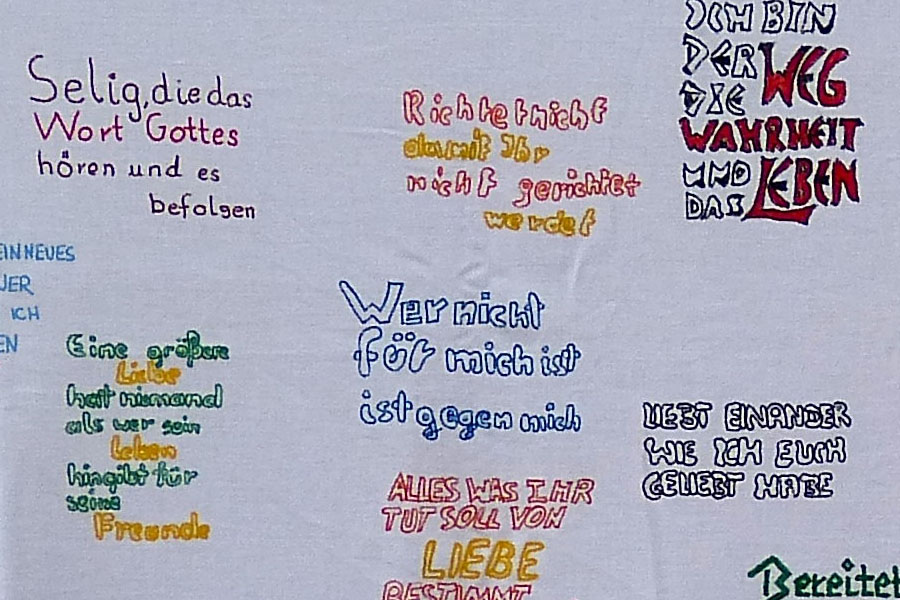 Selig, die das
Wort Gottes
hören und es
befolgen
Richtet nicht
damit Ihr
nicht gerichtet
werdet
ICH BIN
DER WEG
DIE
WAHRHEIT
UND
DAS LEBEN
EIN NEUES
ICH
Eine größere
Liebe
hat niemand
als wer sein
Leben
hingibt für
seine
Freunde
Wer nicht
für mich ist
ist gegen mich
LIEBT EINANDER
WIE ICH EUCH
GELIEBT HABE
ALLES WAS IHR
TUT SOLL VON
LIEBE
BESTIMMT
Bereitet